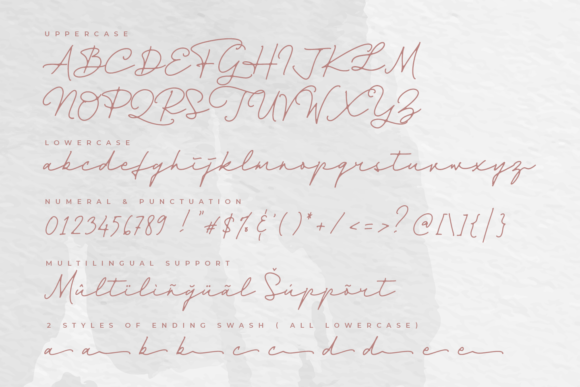 UPPERCASE
ABCDEFGHIJKLM
NOPQRSTUVWXYZ
LOWERCASE
abcdefghijklmnopqrstuvwxyz
NUMERAL & PUNCTUATION
0123456789 ! " # $ % & ' ( ) * + / < = > ? @ [ \ ] { | }
MULTILINGUAL SUPPORT
Múltïliñğüãl Šúppõrt
2 STYLES OF ENDING SWASH ( ALL LOWERCASE)
a a b b c c d d e e